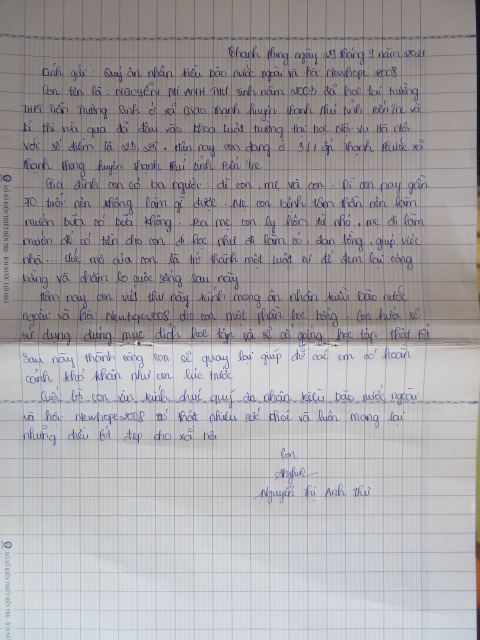 Thạnh Phong ngày 29 tháng 9 năm 2021
Kính gửi: Quý ân nhân kiều bào nước ngoài và hội Newhope2008
Con tên là: NGUYỄN THỊ ANH THƯ sinh năm 2003 đã học tại trường
THPT Trần Trường Sinh ở xã Giao Thạnh huyện Thạnh Phú tỉnh Bến Tre và
kì thi vừa qua đỗ đậu vào khoa luật trường đại học Nội vụ Hà Nội
với số điểm là 25,25. Hiện nay con đang ở 3/1 ấp Thạnh Phước xã
Thạnh Phong huyện Thạnh Phú tỉnh Bến Tre
Gia đình con có ba người: dì con, mẹ và con. Dì con nay gần
70 tuổi nên không làm gì được. Mẹ con bệnh tâm thần nên làm
mướn bữa có bữa không. Ba mẹ con ly hôn từ nhỏ, mẹ đi làm
mướn để có tiền cho con đi học như đi làm cỏ, đan lồng, giúp việc
nhà... Ước mơ của con là trở thành một luật sư để đem lại công
bằng và chăm lo cuộc sống sau này
Hôm nay con viết thư này kính mong ân nhân kiều bào nước
ngoài và hội Newhope2008 cho con một phần học bổng. Con hứa sẽ
sử dụng đúng mục đích học tập và sẽ cố gắng học tập thật tốt
sau này thành công con sẽ quay lại giúp đỡ các em có hoàn
cảnh khó khăn như con lúc trước
Cuối lời con xin kính chúc quý ân nhân kiều bào nước ngoài
và hội Newhope2008 có thật nhiều sức khỏe và luôn mang lại
những điều tốt đẹp cho xã hội
Con
Nguyễn Thị Anh Thư